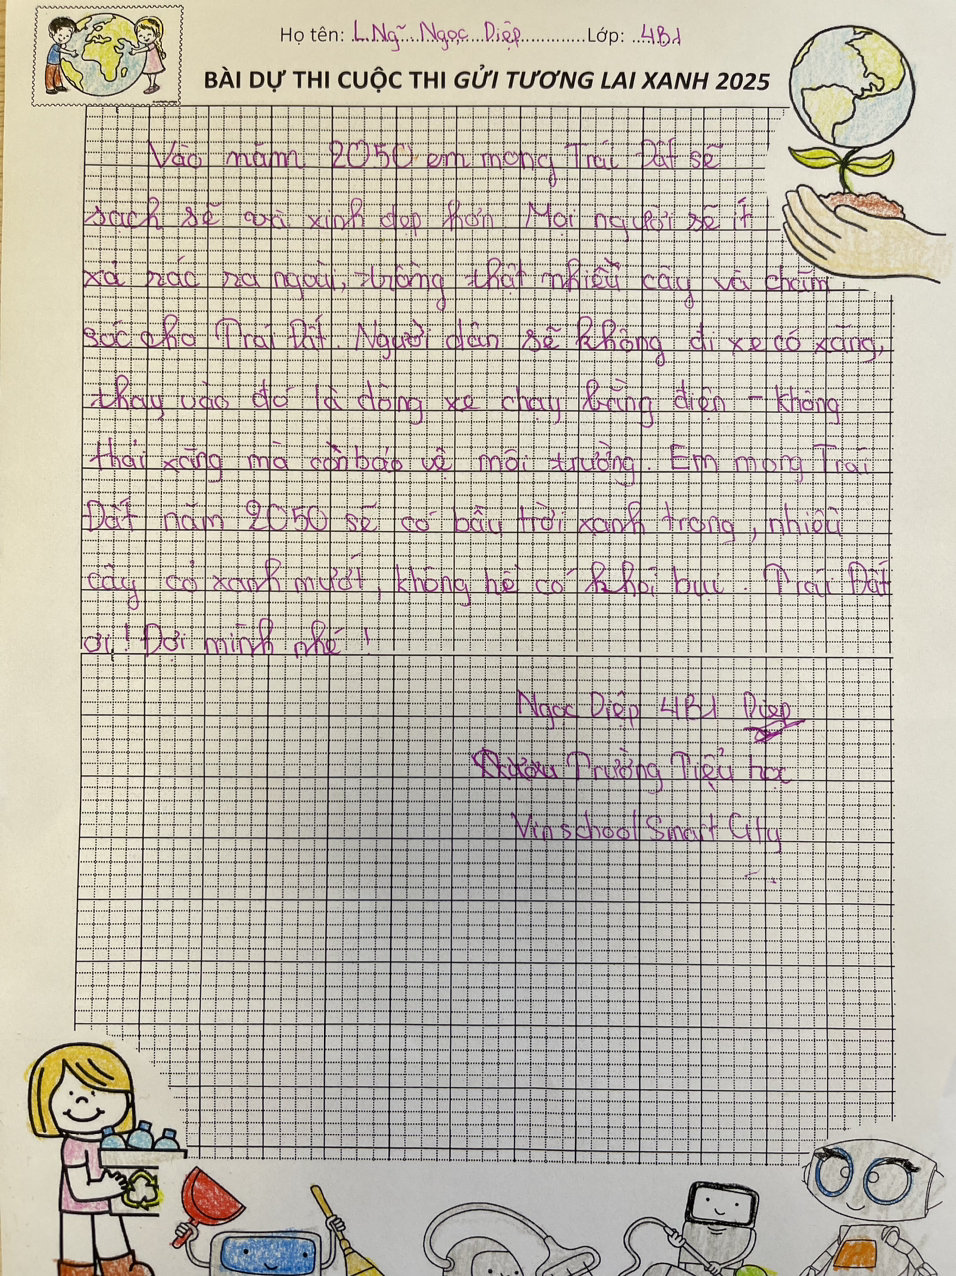 Họ tên: L.Ngĩ...Ngọc...Diệp.............Lớp: ...4B1
BÀI DỰ THI CUỘC THI GỬI TƯƠNG LAI XANH 2025
Vào năm 2050 em mong Trái Đất sẽ
sạch sẽ và xinh đẹp hơn. Mọi người sẽ ít
xả rác ra ngoài, trồng thật nhiều cây và chăm
sóc cho Trái Đất. Người dân sẽ không đi xe có xăng,
thay vào đó là dòng xe chạy bằng điện - không
thải xăng mà còn bảo vệ môi trường. Em mong Trái
Đất năm 2050 sẽ có bầu trời xanh trong, nhiều
cây cỏ xanh mướt, không hề có khói bụi. Trái Đất
ơi! Đợi mình nhé!
Ngọc Diệp 4B1 Diệp
Trường Tiểu học
Vinschool Smart City